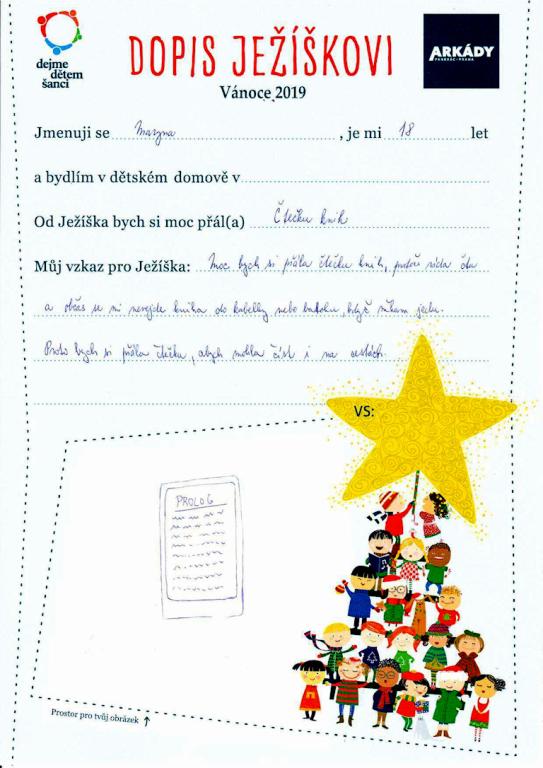 dejme
dětem
šanci
DOPIS JEŽÍŠKOVI
Vánoce 2019
ARKÁDY
PANKRÁC·PRAHA
Jmenuji se Maryna, je mi 18 let
a bydlím v dětském domově v
Od Ježíška bych si moc přál(a) Čtečku knih
Můj vzkaz pro Ježíška: Moc bych si přála čtečku knih, protože ráda čtu
a občas se mi nevejde kniha do kabelky nebo batohu, když někam jedu.
Proto bych si přála čtečku, abych mohla číst i na cestách.
VS:
PROLOG
Prostor pro tvůj obrázek